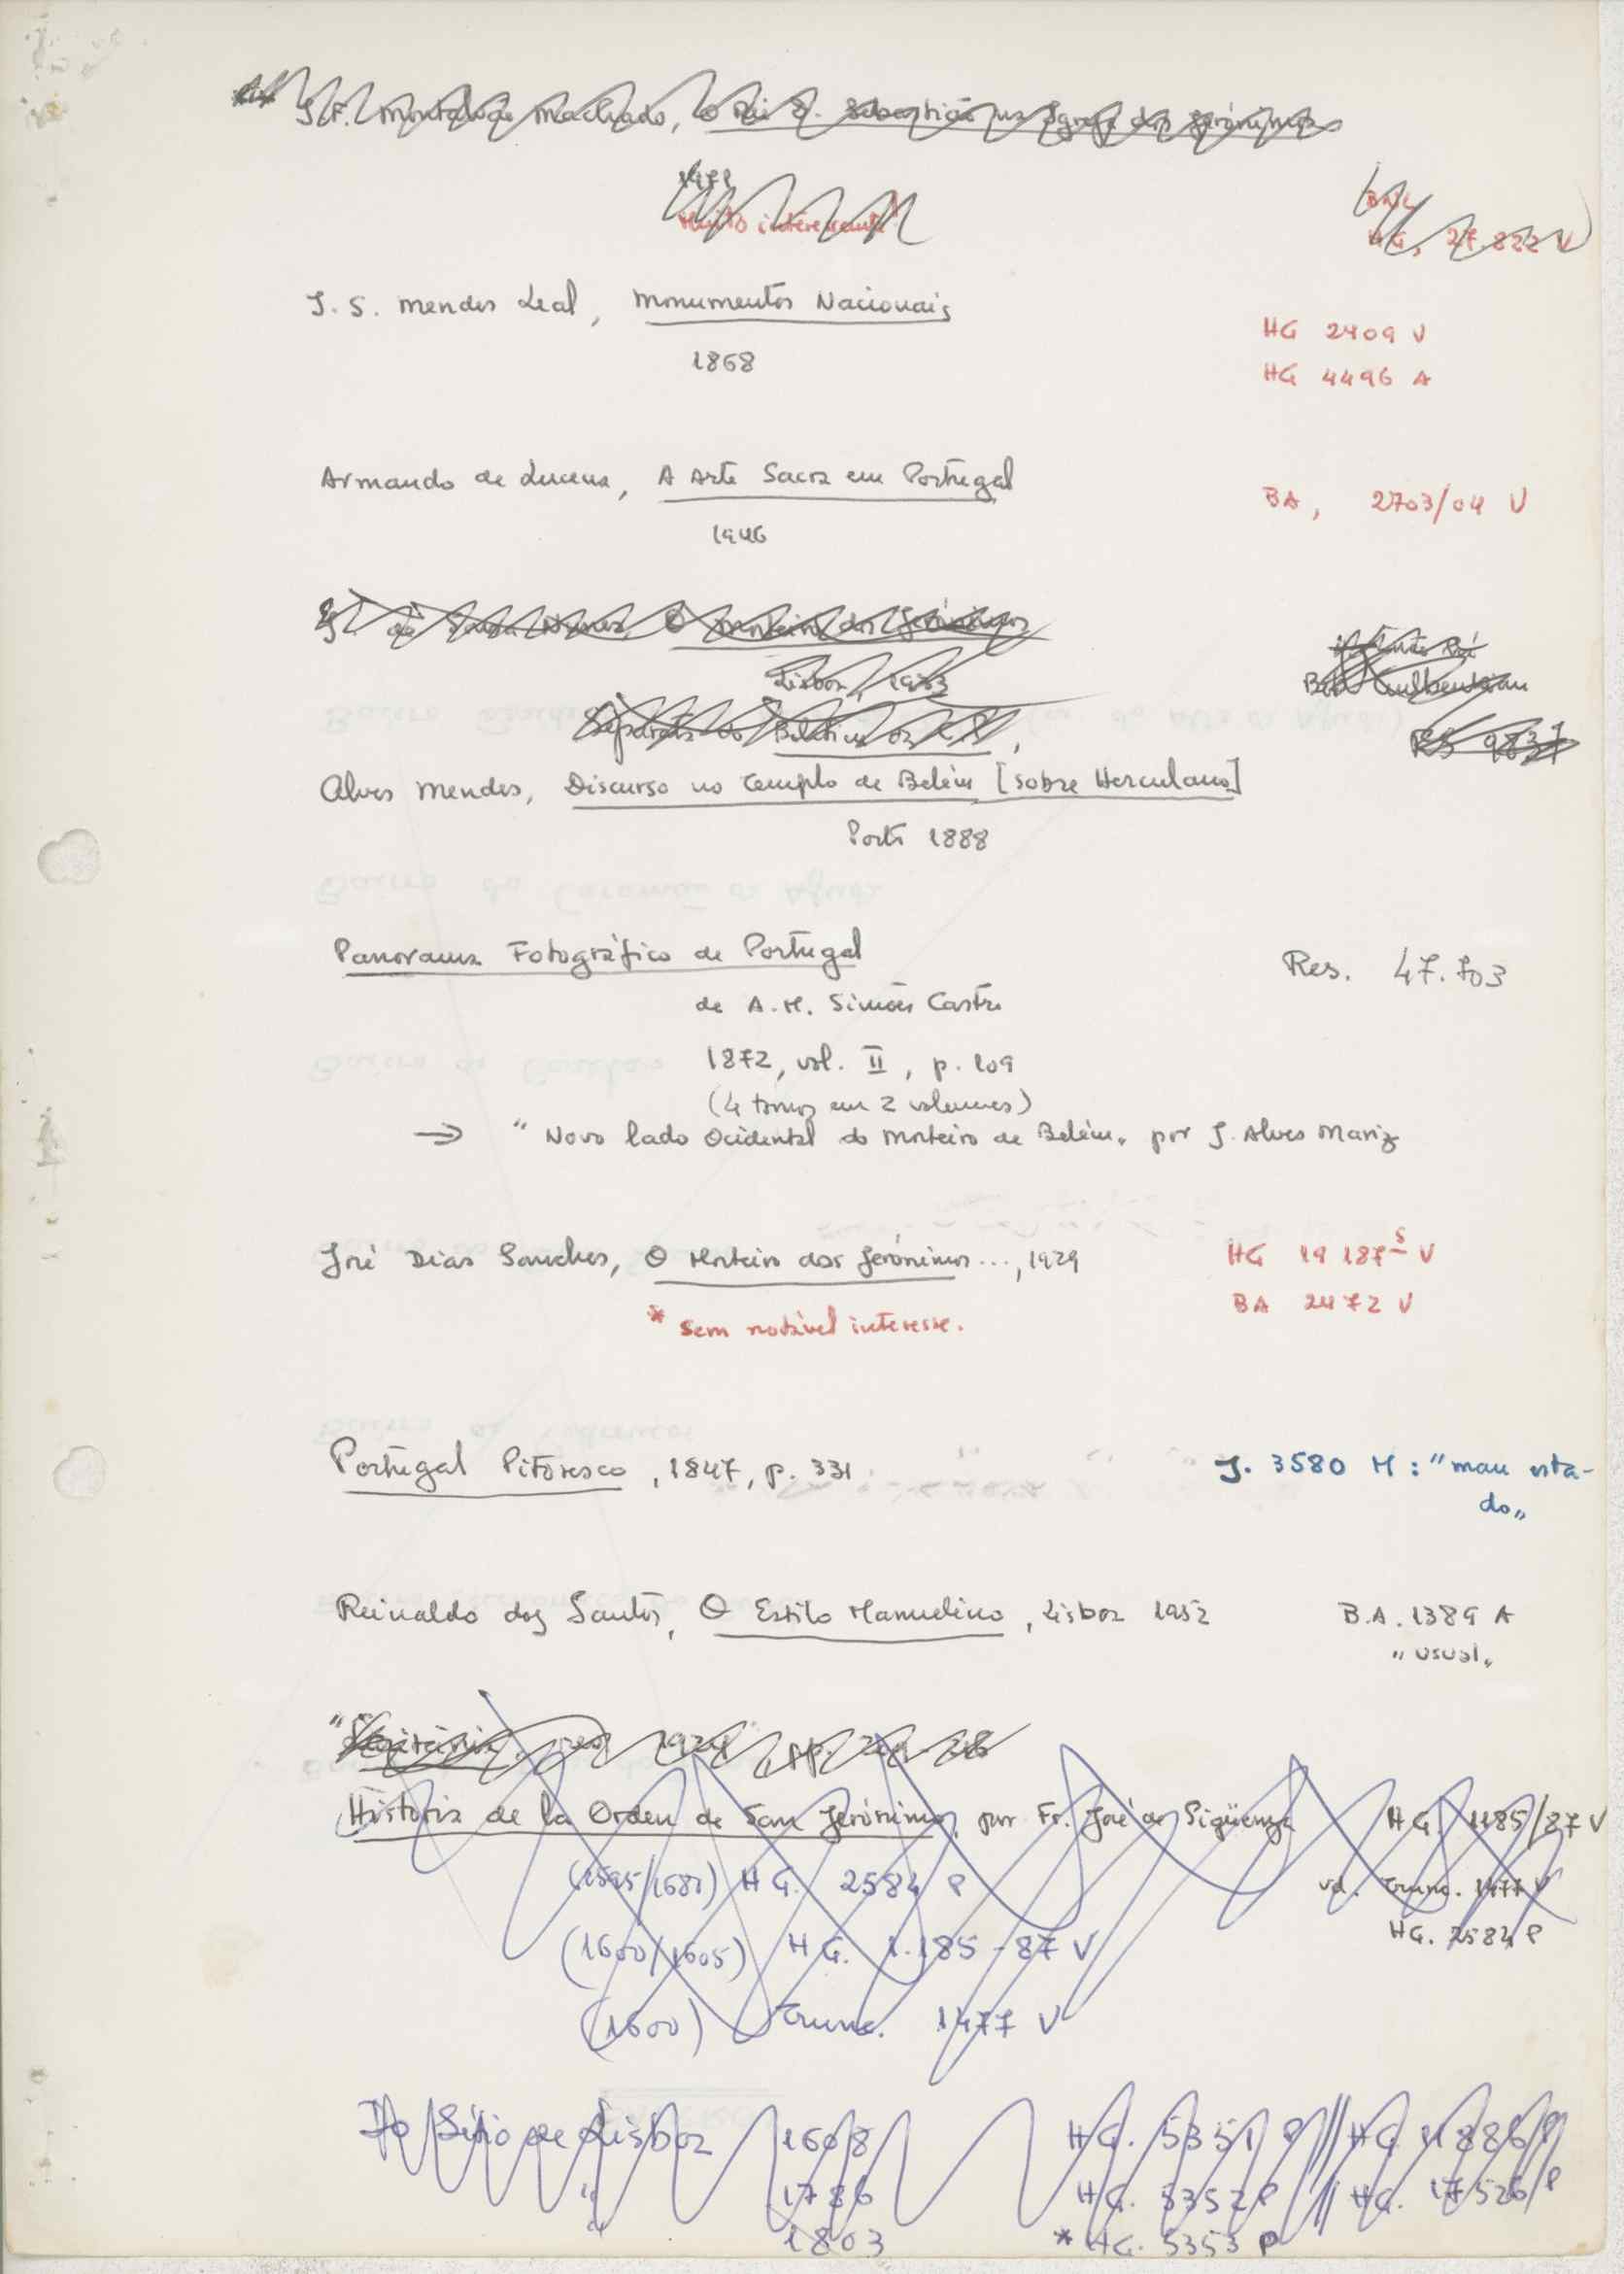 J. F. Machado, O Rei D. Sebastião na Igreja dos Jerónimos
Muito interessante
HG, 27.822 V
J. S. Mendes Leal, Monumentos Nacionais
1868
HG 2409 V
HG 4496 A
Armando de Lucena, A Arte Sacra em Portugal
1946
BA, 2703/04 V
O Mosteiro dos Jerónimos
Lisboa, 1953
Gulbenkian
Separata do
Alves Mendes, Discurso no Templo de Belém [sobre Herculano]
Porto 1888
Panorama Fotográfico de Portugal
Res. 47.703
de A. M. Simões Castro
1872, vol. II, p. 109
(4 tomos em 2 volumes)
→ "Novo lado Ocidental do Mosteiro de Belém" por J. Alves Mariz
José Dias Sanches, O Mosteiro dos Jerónimos..., 1929
HG 19 187 S V
BA 2472 V
* Sem notável interesse.
Portugal Pitoresco, 1847, p. 331
J. 3580 M : "mau esta-
do"
Reinaldo dos Santos, O Estilo Manuelino, Lisboa 1952
B.A. 1389 A
"usual"
Historia de la Orden de San Jerónimo, por Fr. José de Sigüenza
HG. 1185/87 V
vd. Trunc. 1477 V
HG. 2584 P
HG. 2584 P
(1600/1605) HG. 1.185-87 V
(1600) Trunc. 1477 V
Do Sítio de Lisboa 1608 HG. 5351 P // HG. 11886 P
" 1786 HG. 5352 P // HG. 17526 P
" 1803 * HG. 5353 P